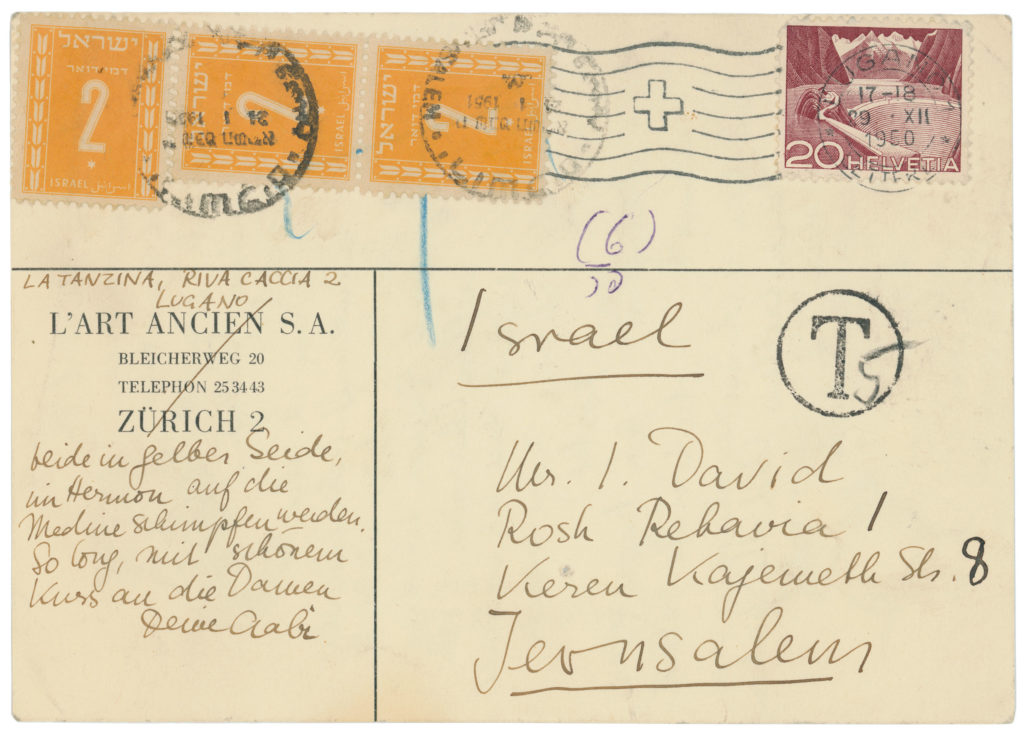 ישראל
דמי דואר
2
ISRAEL اسرائيل
ישראל
דמי דואר
2
ISRAEL
ישראל
דמי דואר
2
ISRAEL اسرائيل
1951
17-18
XII
1950
20 HELVETIA
(6)
LA TANZINA, RIVA CACCIA 2
LUGANO
L'ART ANCIEN S.A.
BLEICHERWEG 20
TELEPHON 25 34 43
ZÜRICH 2
beide in gelber Seide,
im Hermon auf die
Medine schimpfen werden.
So long, mit schönem
Kuss an die Damen
Deine Gabi
Israel
T
5
Mr. I. David
Rosh Rehavia 1
Keren Kajemeth Str. 8
Jerusalem